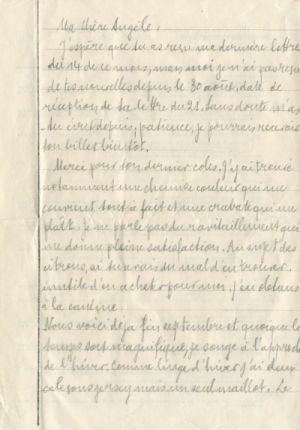 Ma chère Angèle,
J'espère que tu as reçu ma dernière lettre
du 14 de ce mois, mais moi je n'ai pas reçu
de tes nouvelles depuis le 30 août, date de
réception de ta lettre du 21. Sans doute m'as
tu écrit depuis, patience, je pourrai recevoir
ton billet bientôt.
Merci pour ton dernier colis. J'y ai trouvé
notamment une chemise couleur qui me
convient tout à fait et une cravate qui me
plaît. Je ne parle pas du ravitaillement qui
me donne pleine satisfaction. Au sujet des
citrons, si tu avais du mal d'en trouver
inutile d'en acheter pour moi, j'en obtiens
à la cantine.
Nous voici déjà fin septembre et quoique le
temps soit magnifique, je songe à l'approche
de l'hiver. Comme linge d'hiver j'ai deux
caleçons jersey mais un seul maillot. Le